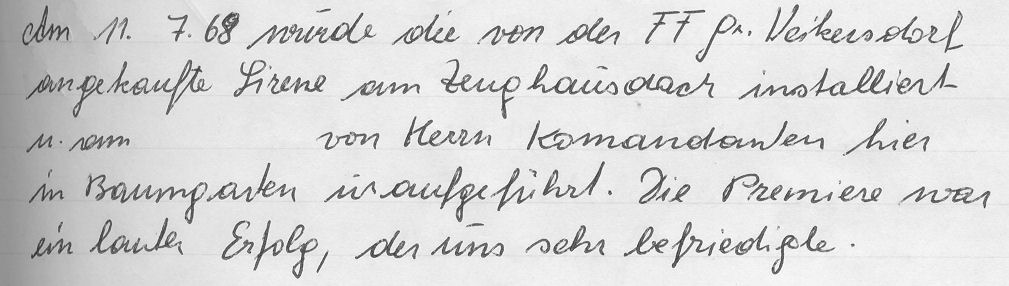 Am 11. 7. 68 wurde die von der FF Gr. Weikersdorf
angekaufte Sirene am Zeughausdach installiert
u. am von Herrn Komandanten hier
in Baumgarten uraufgeführt. Die Premiere war
ein lauter Erfolg, der uns sehr befriedigte.